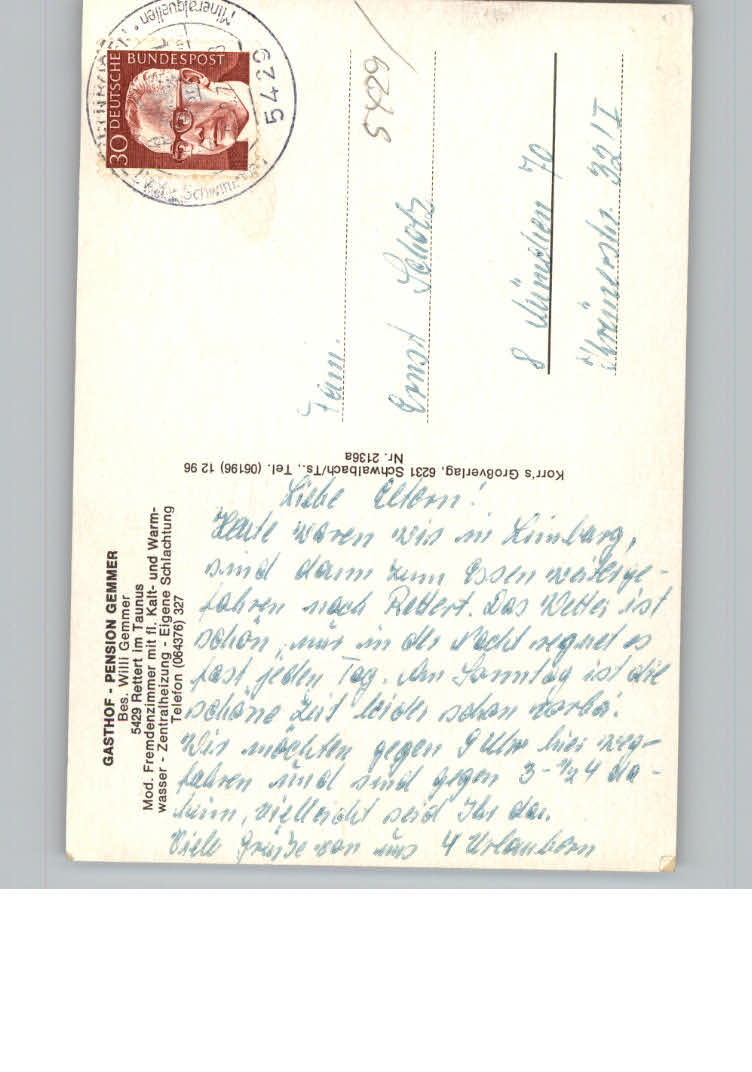 GASTHOF - PENSION GEMMER
Bes. Willi Gemmer
5429 Rettert im Taunus
Mod. Fremdenzimmer mit fl. Kalt- und Warm-
wasser - Zentralheizung - Eigene Schlachtung
Telefon (064376) 327
Liebe Eltern!
Heute waren wir in Limburg,
sind dann zum Essen weiterge-
fahren nach Rettert. Das Wetter ist
schön, nur in der Nacht regnet es
fast jeden Tag. Am Sonntag ist die
schöne Zeit leider schon vorbei.
Wir möchten gegen 9 Uhr hier weg-
fahren und sind gegen 3-1/2 4 da-
heim, vielleicht seid Ihr da.
Viele Grüße von uns 4 Urlaubern
Korr's Großverlag, 6231 Schwalbach/Ts., Tel. (06196) 12 96
Nr. 2136a
30 DEUTSCHE BUNDESPOST
Mineralquellen
5429
5429/
Fam.
Ernst Scholz
8 München 70
32/I